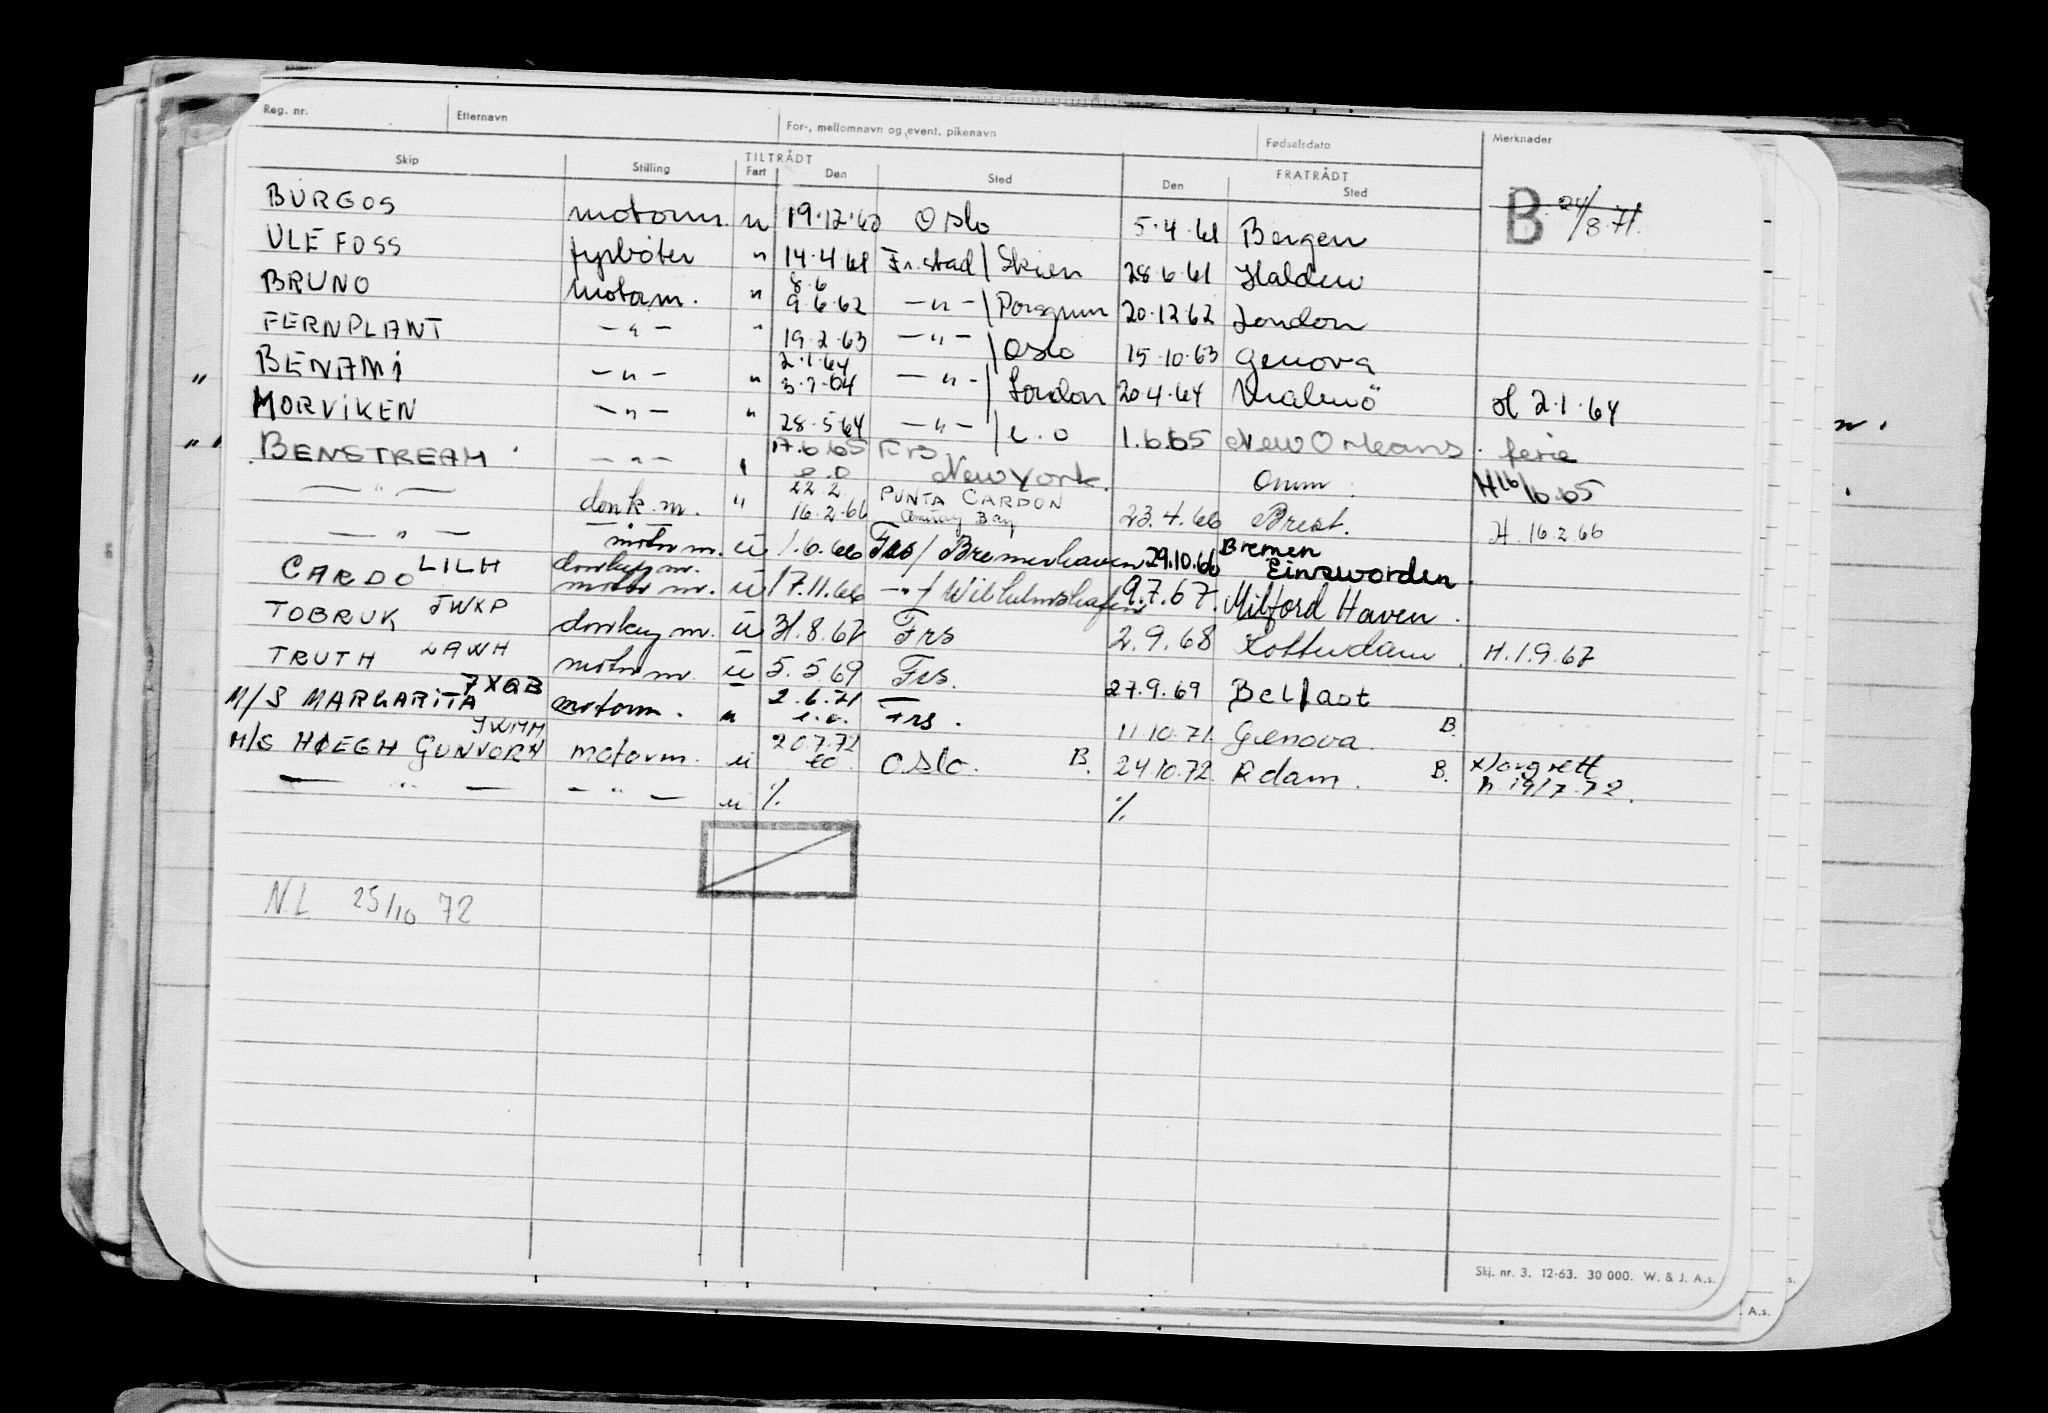 Reg. nr. Etternavn For-, mellomnavn og event. pikenavn Fødselsdato Merknader
TILTRÅDT FRATRÅDT
Skip Stilling Fart Den Sted Den Sted
B 24/8.71.
BURGOS motorm. u 19.12.60 Oslo 5.4.61 Bergen
ULEFOSS fyrbøter " 14.4.61 Fr.stad / Skien 28.6.61 Halden
8.6
BRUNO motorm. " 9.6.62 — " — / Porsgrunn 20.12.62 London
FERNPLANT — " — " 19.2.63 — " — / Oslo 15.10.63 Genova
2.1.64
" BENAMI — " — " 3.1.64 — " — / London 20.4.64 Malmö H 2.1.64
MORVIKEN — " — " 28.5.64 — " — / e.o 1.6.65 New Orleans. ferie
17.6.65 Frs
" BENSTREAM — " — " e.o New York. Omm. H16/6.65
22.2 PUNTA CARDON
— " — donk.m. " 16.2.66 Amuay Bay 23.4.66 Brest. H. 16.2.66
— " — motorm. u 1.6.66 Frs / Bremerhaven 29.10.66 Bremen
Einswarden
donkey m.
CARDO LILH motor m. u 17.11.66 — " / Wilhelmshafen 9.7.67. Milford Haven.
TOBRUK JWKP donkey m. u 31.8.67 Frs 2.9.68 Rotterdam. H.1.9.67
TRUTH LAWH motorm. u 5.5.69 Frs. 27.9.69 Belfast
7XQB 2.6.71
M/S MARGARITA motorm. u e.o. Frs. 11.10.71 Genova. B.
JWMM 20.7.72
M/S HØEGH GUNVOR motorm. u eo. Oslo. B. 24.10.72. Rdam. B. h. 19/7.72.
— " — — " — u % %
N.L 25/10 72
Skj. nr. 3. 12-63. 30 000. W. & J. A.s.
A.s.